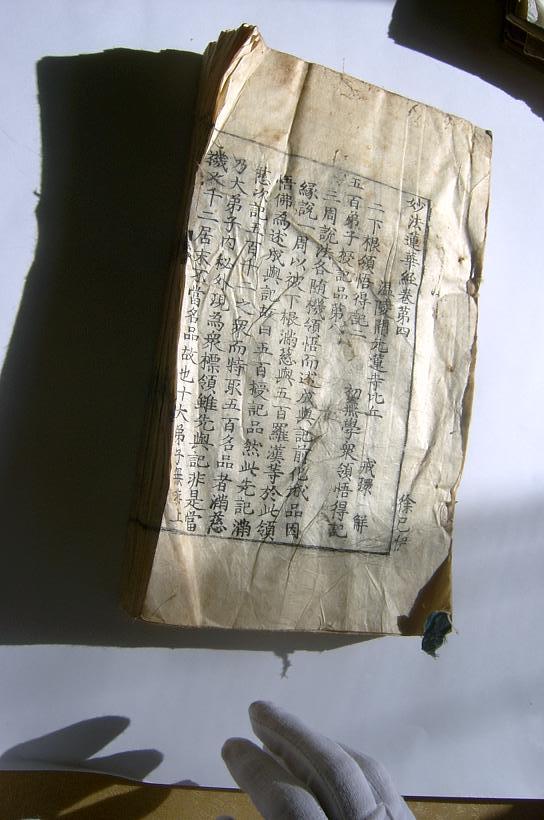 妙法蓮華經卷第四
溫陵開元蓮寺比丘 戒環 解
二下根領悟得記二 初無學衆領悟得記
五百弟子授記品第八
三周說法各隨機領悟而述成與記前化城品因
緣說一周以被下根滿慈與五百羅漢等於此領
悟佛爲述成與記故曰五百授記品然此先記滿
慈次記五百千二之衆而特取五百名品者滿慈
乃大弟子內秘外現爲衆標領雖先與記非是當
機又千二居末不當名品故也十大弟子